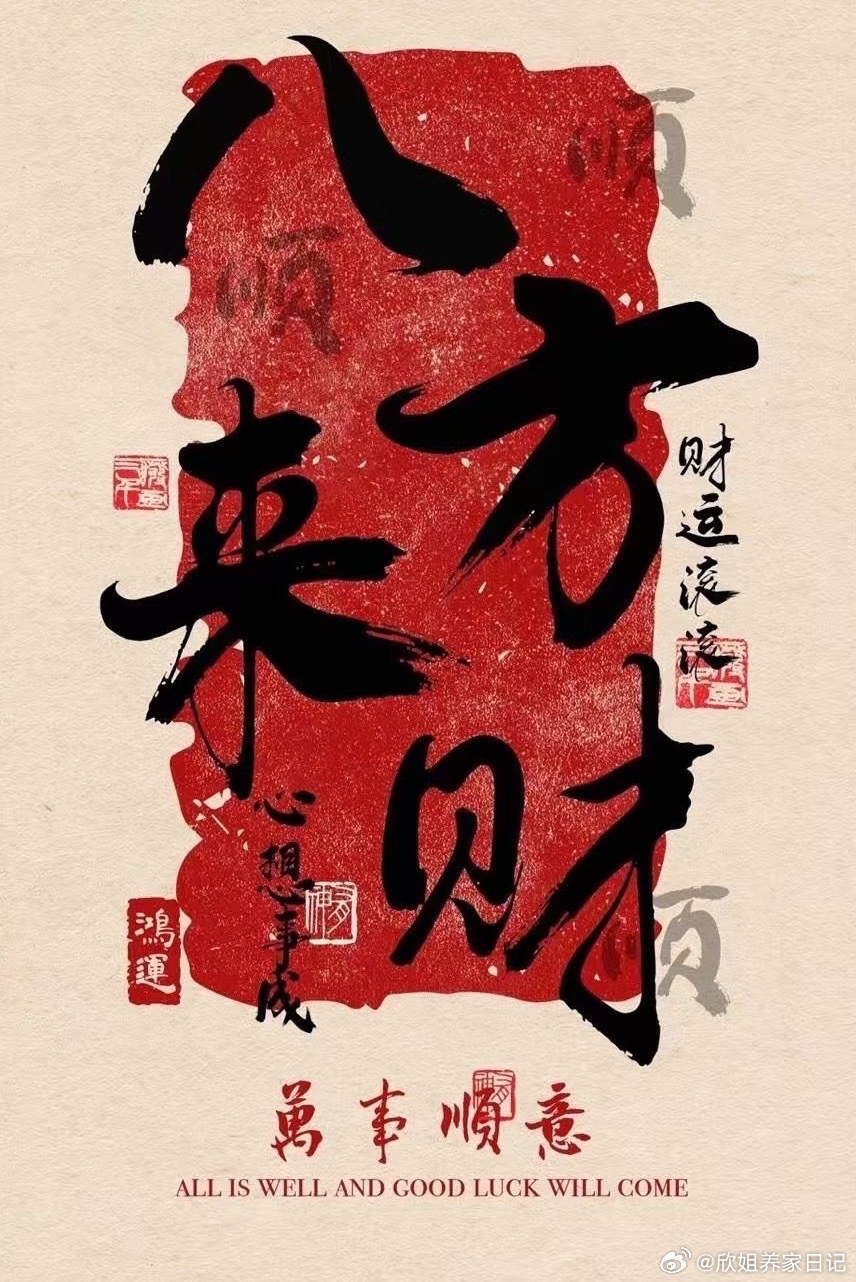 八方来财
顺
顺
财运滚滚
心想事成
鸿運
顺
萬事順意
ALL IS WELL AND GOOD LUCK WILL COME
@欣姐养家日记